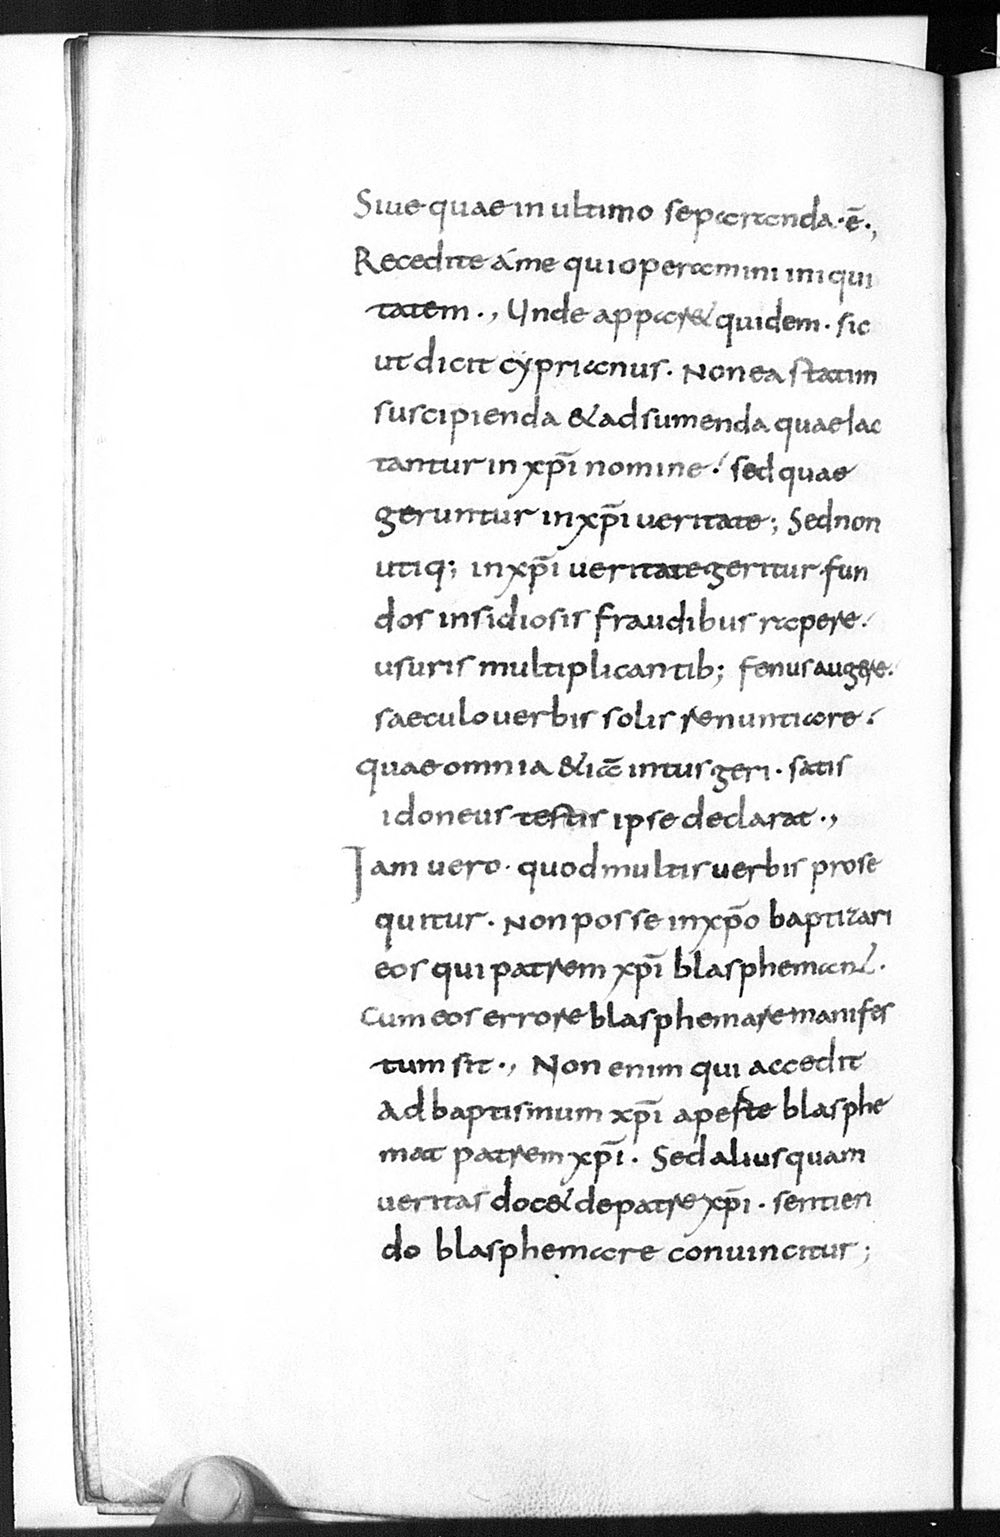 Siue quae in ultimo separanda · ē.,
Recedite á me qui operamini iniqui
tatem ., Unde apparet quidem · sic
ut dicit cyprianus. Non ea statim
suscipienda & adsumenda quae iac
tantur in xp̄i nomine · sed quae
geruntur in xp̄i ueritate ; Sed non
utiq; in xp̄i ueritate geritur · fun
dos insidiosis fraudibus rapere ·
usuris multiplicantib; fenus augere ·
saeculo uerbis solis renuntiare ·
quae omnia & iā intus geri · satis
idoneus testis ipse declarat .,
Jam uero · quod multis uerbis prose
quitur · Non posse in xp̄o baptizari
eos qui patrem xp̄i blasphemant ·
cum eos errore blasphemare manifes
tum sit ., Non enim qui accedit
ad baptismum xp̄i aperte blasphe
mat patrem xp̄i · Sed alius quam
ueritas doc& de patre xp̄i · sentien
do blasphemare conuincitur ;